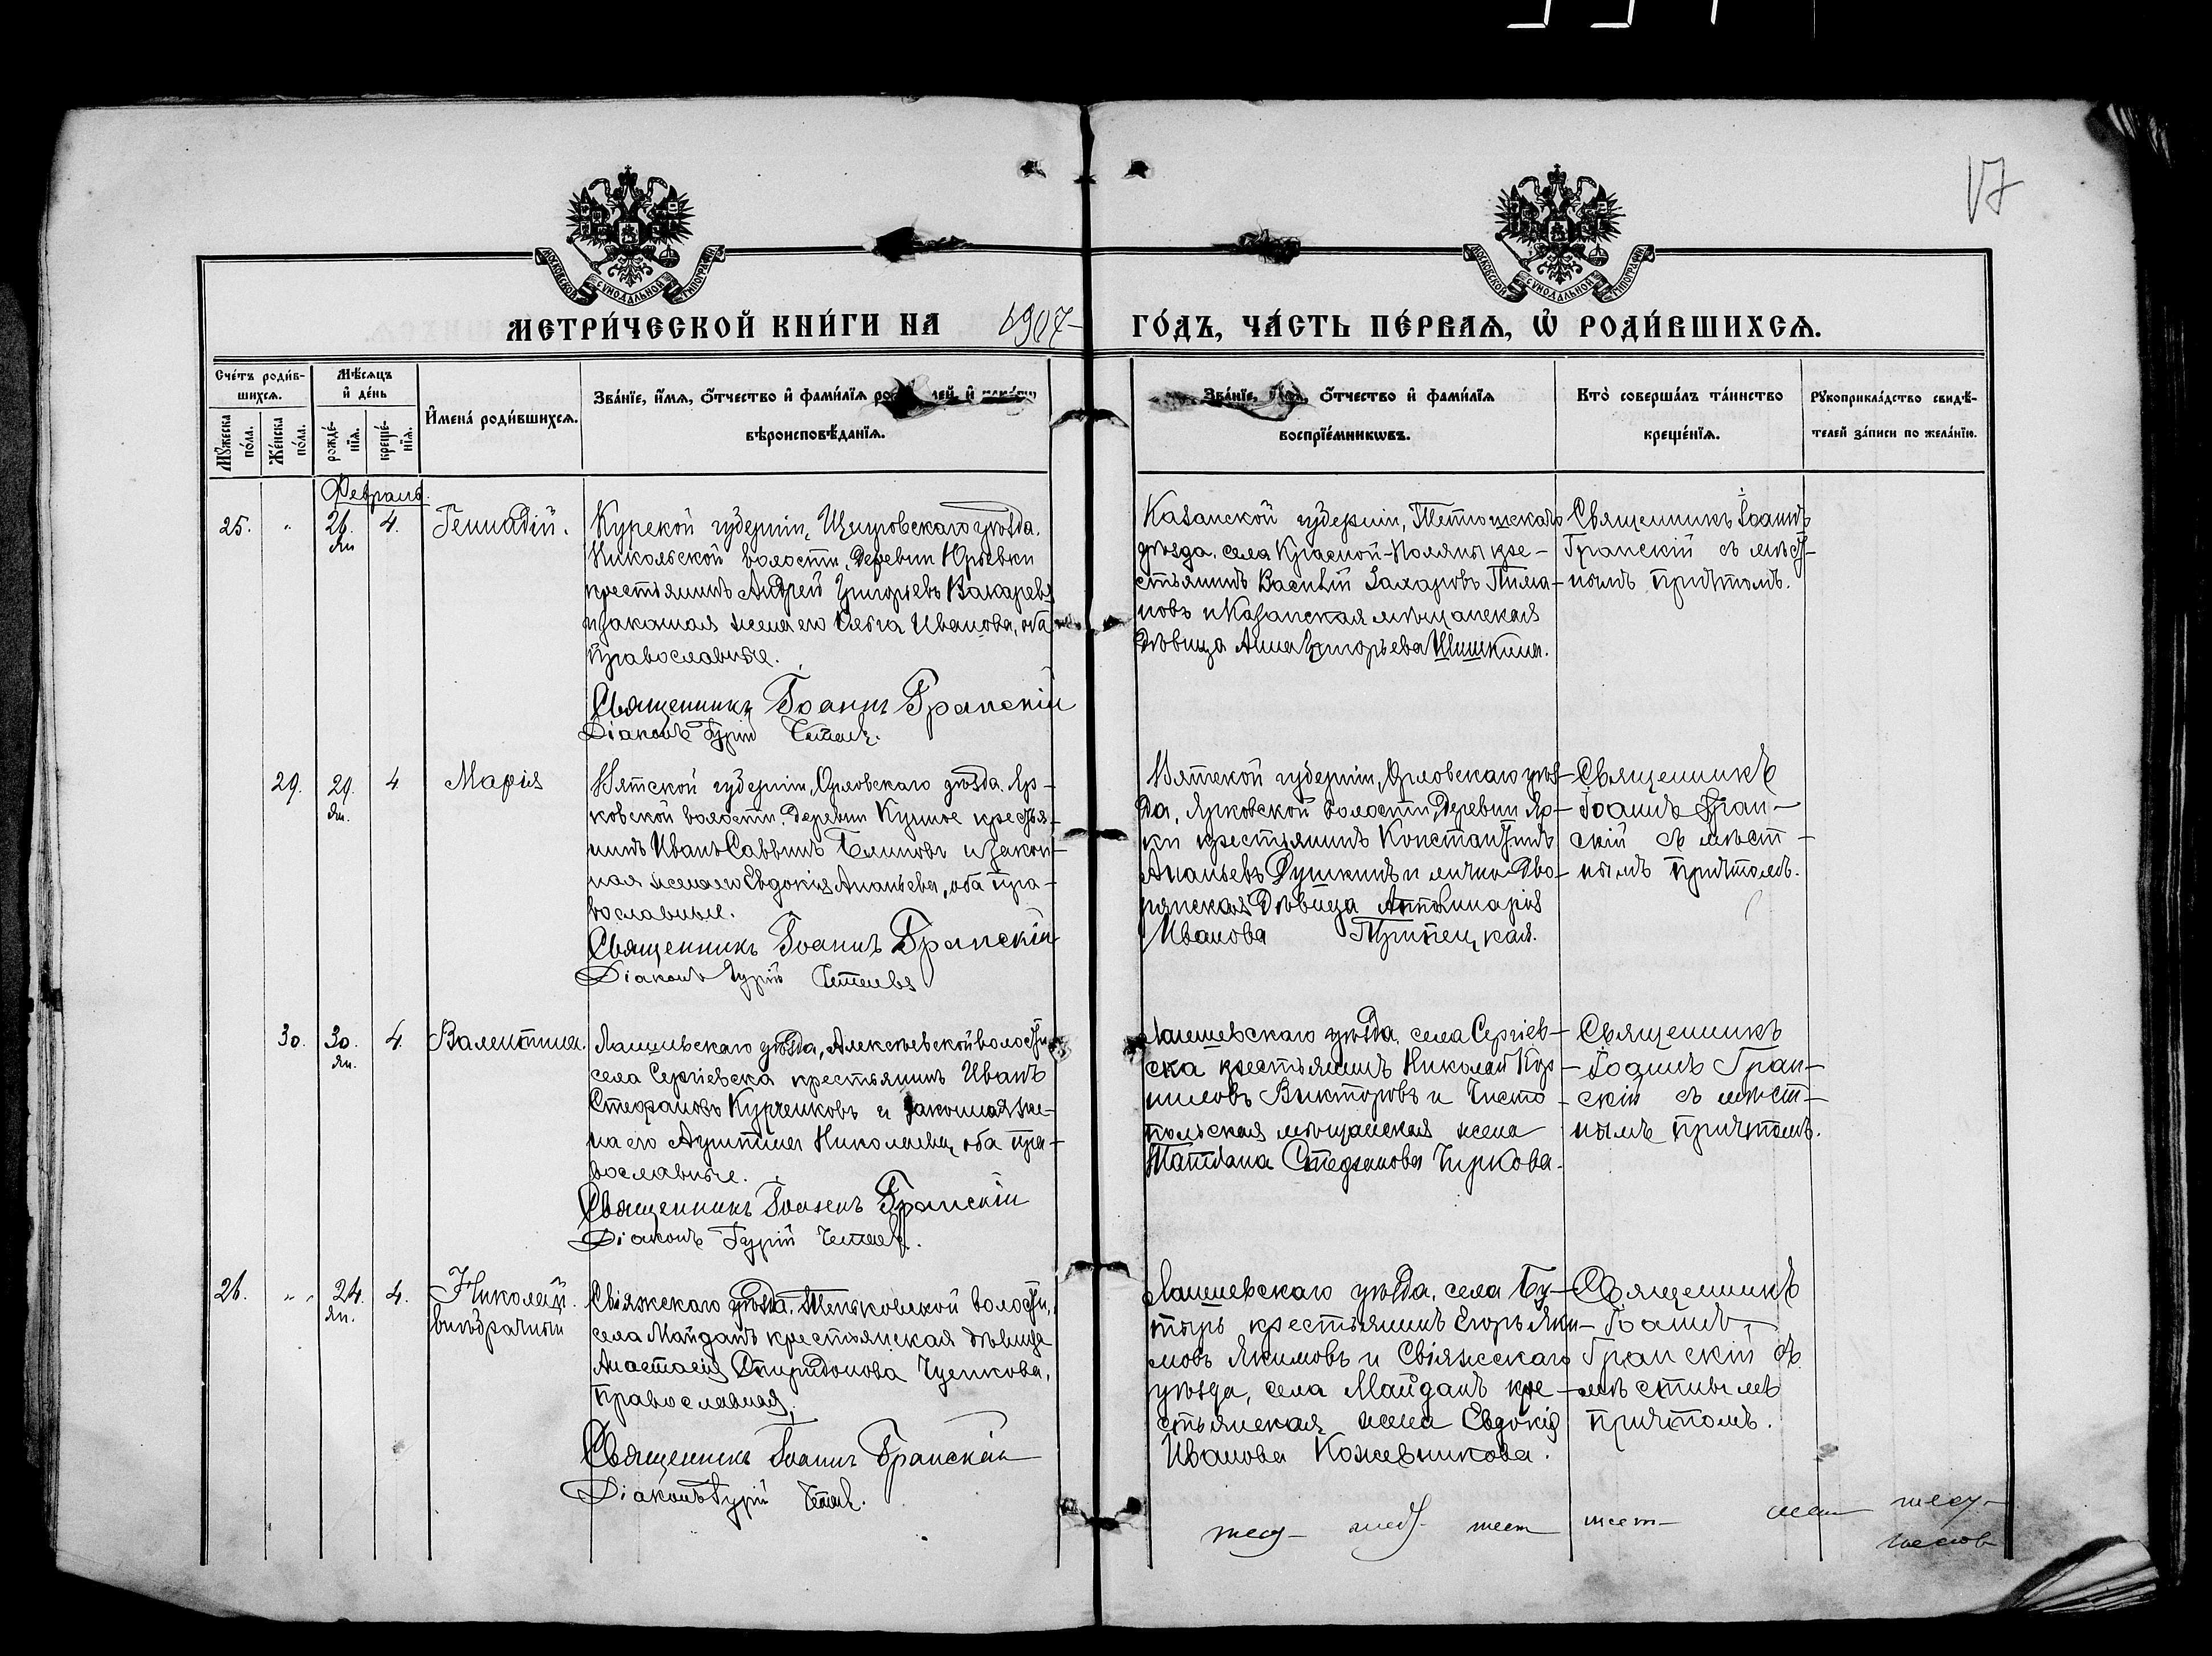 17
МОСКОВСКОЙ СѴНОДАЛЬНОЙ ТИПОГРАФІИ
МОСКОВСКОЙ СѴНОДАЛЬНОЙ ТИПОГРАФІИ
МЕТРИ́ЧЕСКОЙ КНИ́ГИ НА 1907 ГО́ДЪ, ЧА́СТЬ ПЕ́РВАѦ, Ѡ҆ РОДИ́ВШИХСѦ.
Сче́тъ роди́в-
шихсѧ.
Мꙋ́жеска по́ла.
Же́нска по́ла.
Мѣ́сѧцъ
и҆ де́нь
рожде́-
нїѧ.
креще́-
нїѧ.
И҆мена̀ роди́вшихсѧ.
Зва́нїе, и҆́мѧ, ѻ҆́тчество и҆ фами́лїѧ
вѣроисповѣ́данїѧ.
Зва́нїе, и҆́мѧ, ѻ҆́тчество и҆ фами́лїѧ
воспрїе́мникѡвъ.
Кто̀ соверша́лъ та́инство
креще́нїѧ.
Рꙋкоприкла́дство свидѣ́-
телей за́писи по жела́нїю.
Февраль.
25. " 26. Ян 4. Геннадій.
Курской губерніи, Щигровскаго уѣзда,
Никольской волости, деревни Юрьевки
крестьянинъ Андрей Григорьевъ
и законная жена его Ольга Иванова, оба
православные.
Священникъ Іоаннъ Гранскій
Діаконъ Гурій
Казанской губерніи, Тетюшскаго
уѣзда, села Красной-Поляны кре-
стьянинъ Василій Захаровъ Пима-
новъ и Казанская мѣщанская
дѣвица Анна Григорьева Шишкина.
Священникъ Іоаннъ
Гранскій съ мѣст-
нымъ причтомъ.
29. 29. Ян. 4 Марія
Вятской губерніи, Орловскаго уѣзда, Яр-
ковской волости, деревни крестья-
нинъ Иванъ Саввинъ Блиновъ и закон-
ная жена его Евдокія Ананьева, оба пра-
вославные.
Священникъ Іоаннъ Гранскій
Діаконъ Гурій
Вятской губерніи, Орловскаго уѣз-
да, Ярковской волости, деревни Яр-
ки крестьянинъ Константинъ
Ананьевъ Душкинъ и лично-дво-
рянская дѣвица
Иванова
Священникъ
Іоаннъ Гран-
скій съ мѣст-
нымъ причтомъ.
30. 30. Ян. 4. Валентина.
Лаишевскаго уѣзда, Алексѣевской волости,
села Сергіевска крестьянинъ Иванъ
Стефановъ Курченковъ и законная же-
на его Агрипина Николаева, оба пра-
вославные.
Священникъ Іоаннъ Гранскій
Діаконъ Гурій
Лаишевскаго уѣзда, села Сергіев-
ска крестьянинъ Николай Кор-
ниловъ Викторовъ и Чисто-
польская мѣщанская жена
Татіана Стефанова Чиркова.
Священникъ
Іоаннъ Гран-
скій съ мѣст-
нымъ причтомъ.
26. " " 24. Ян. 4. Николай.
внѣбрачный
Свіяжскаго уѣзда, Теньковской волости,
села Майданъ крестьянская дѣвица
Анастасія Спиридонова
православная.
Священникъ Іоаннъ Гранскій
Діаконъ Гурій
Лаишевскаго уѣзда, села Бу-
тырь крестьянинъ Егоръ Яки-
мовъ Якимовъ и Свіяжскаго
уѣзда, села Майданъ кре-
стьянская жена Евдокія
Иванова Кожевникова.
Священникъ
Іоаннъ
Гранскій съ
мѣстнымъ
причтомъ.